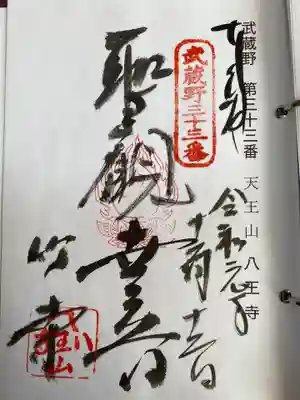 武蔵野 第三十三番 天王山 八王寺
奉拝
令和元年
武蔵野三十三番
聖観世音
竹寺